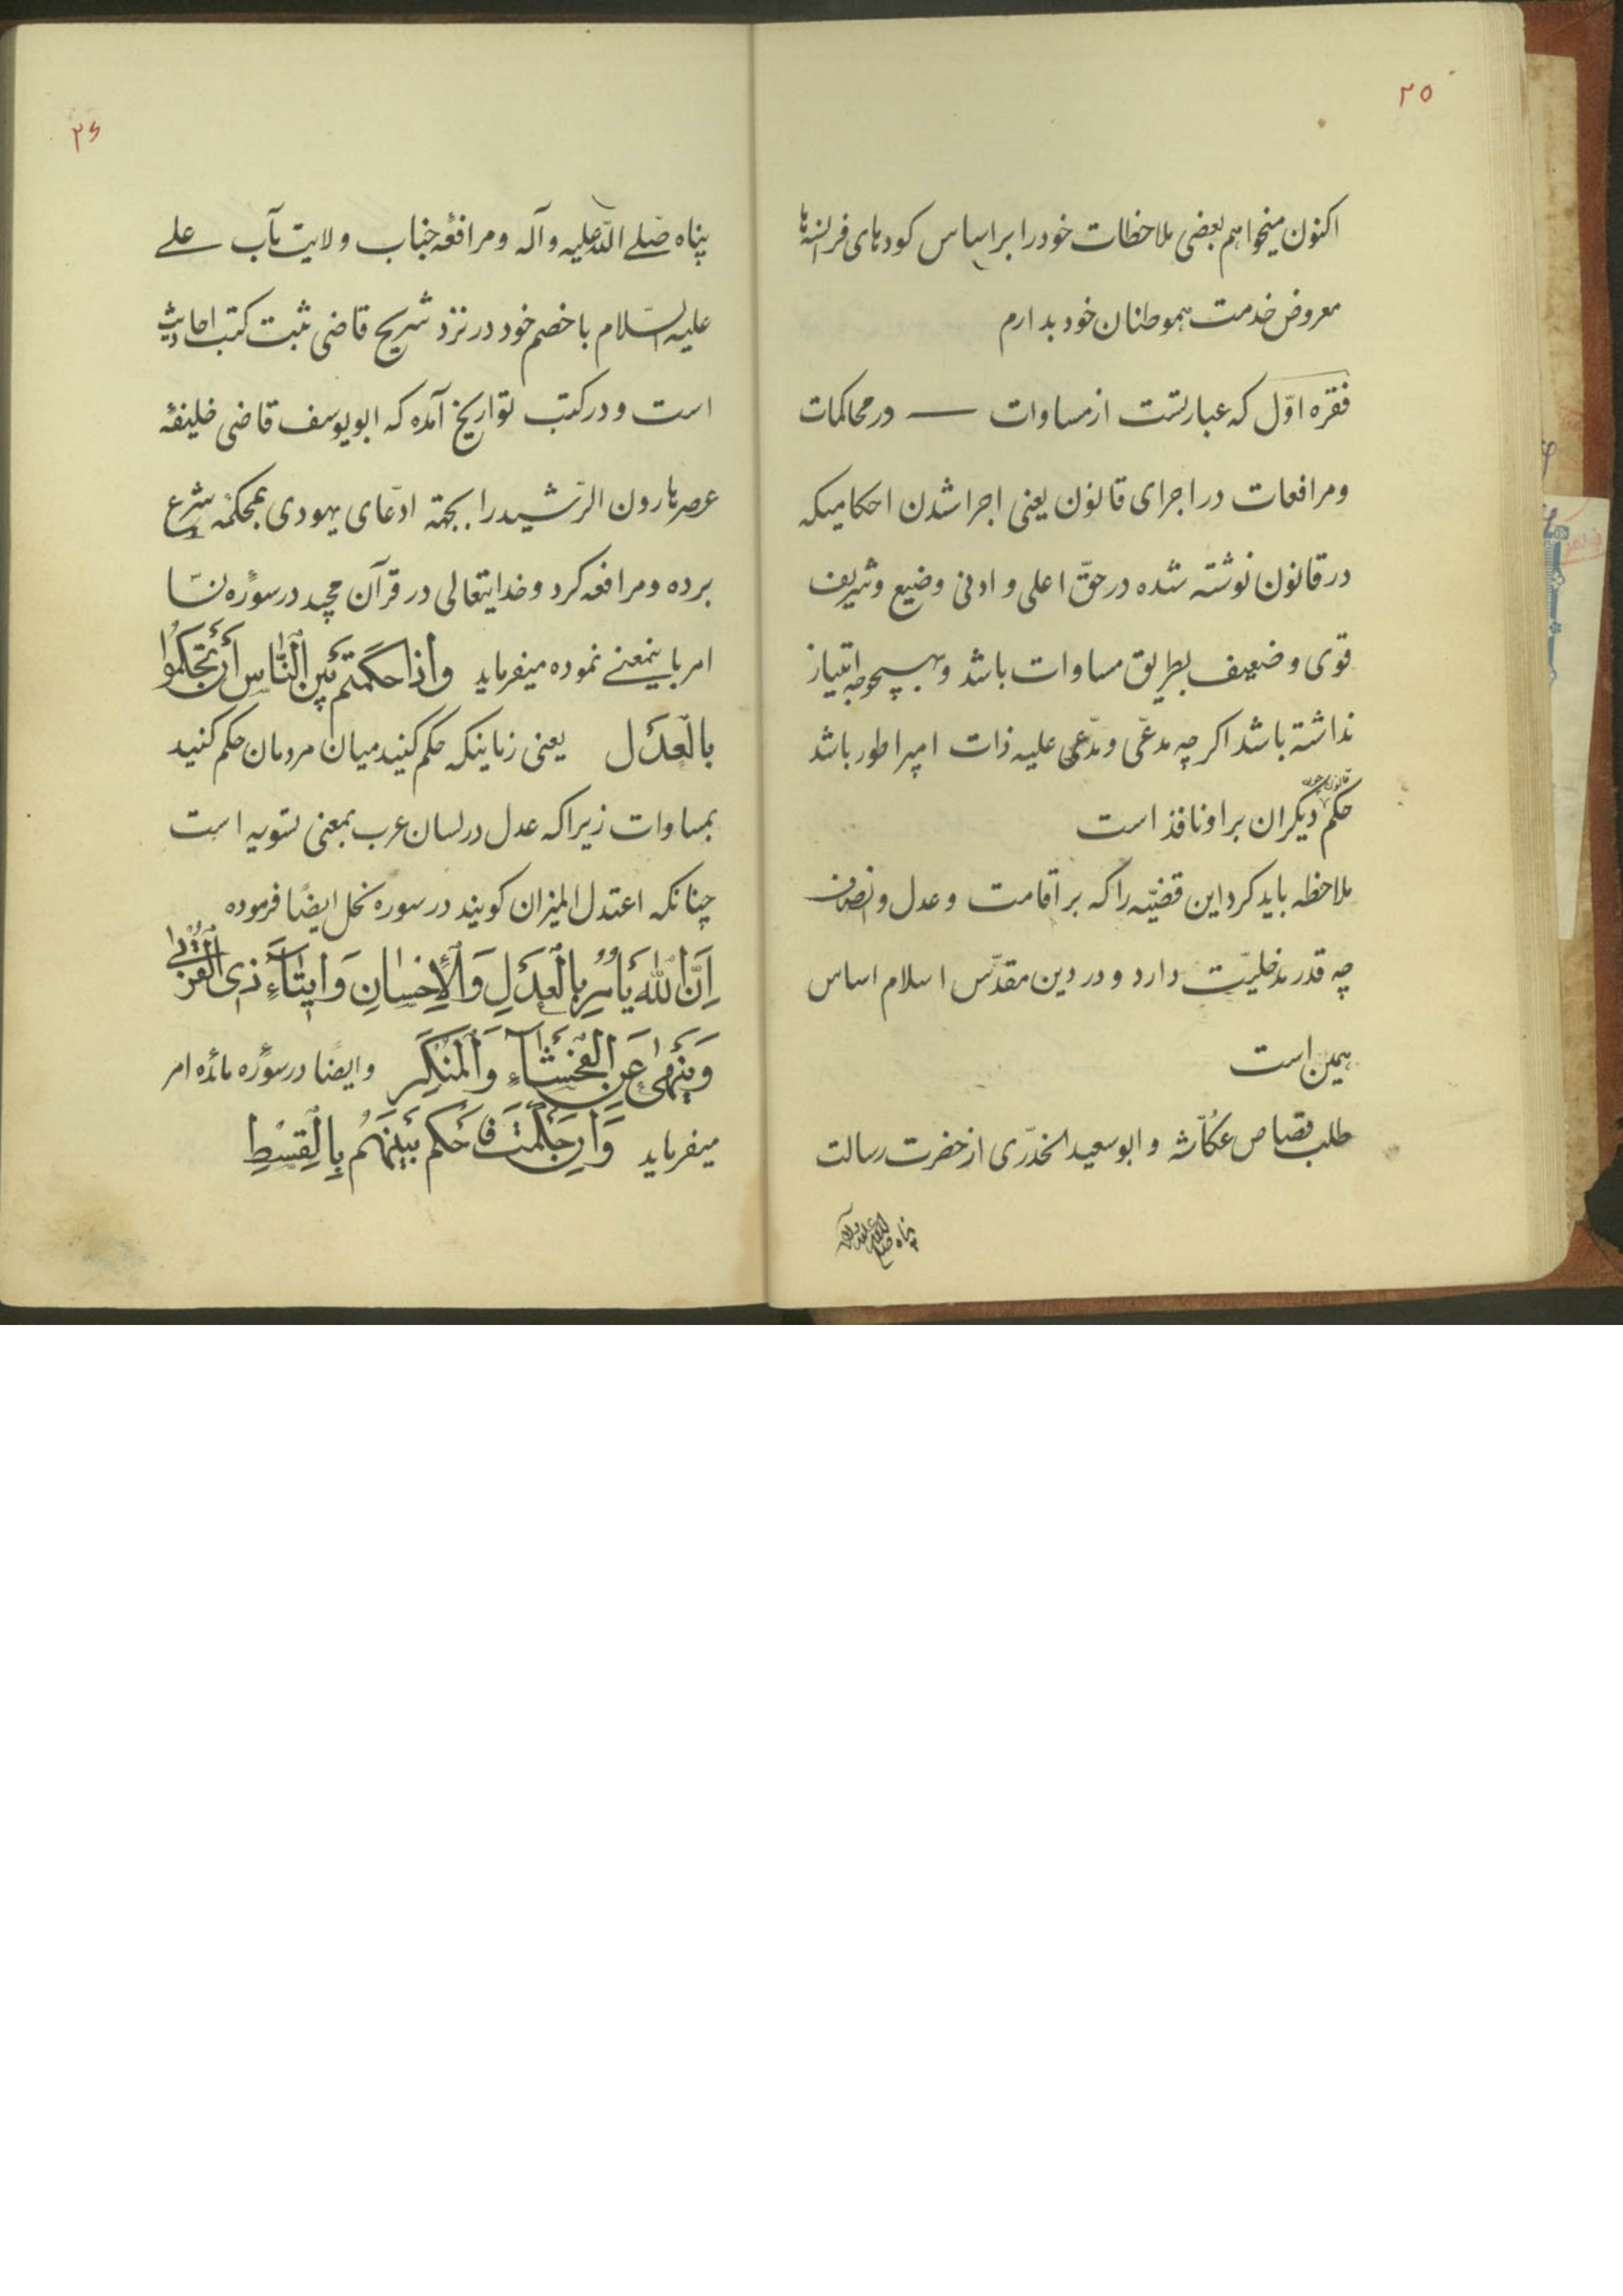 ۲۵
اکنون میخواهم بعضی ملاحظات خود را بر اساس کودهای فرانسه‌ها
معروض خدمت هموطنان خود بدارم
فقره اوّل که عبارتست از مساوات در محاکمات
و مرافعات در اجرای قانون یعنی اجرا شدن احکامیکه
در قانون نوشته شده در حقّ اعلی و ادنی وضیع و شریف
قوی و ضعیف بطریق مساوات باشد و بهیچوجه امتیاز
نداشته باشد اکر چه مدّعی و مدّعی علیه ذات امپراطور باشد
حکم قانون چون دیکران بر او نافذ است
ملاحظه باید کرد این قضیّه را که بر اقامت و عدل و انصاف
چه قدر مدخلیّت دارد و در دین مقدّس اسلام اساس
همین است
طلب قصاص عکّاشه و ابو سعید الخدّری از حضرت رسالت
پناه صلی الله علیه و آله
۲۶
پناه صّلے اللّه علیه و آله و مرافعهٔ جناب ولایت مآب علے
علیه السّلام با خصم خود در نزد شریح قاضی ثبت کتب احادیث
است و در کتب تواریخ آمده که ابو یوسف قاضی خلیفهٔ
عصر هارون الرّشید را بجهة ادّعای یهودی بمحکمهٔ شرع
برده و مرافعه کرد و خدایتعالی در قرآن مجید در سورهٔ نسّا
امر باینمعنے نموده میفرماید وَاِذا حَکَمْتُمْ بَیْنَ النّاسِ اَنْ تَحْکُمُوا
بِالْعَدْل یعنی زمانیکه حکم کنید میان مردمان حکم کنید
بمساوات زیرا که عدل در لسان عرب بمعنی تسویه است
چنانکه اعتدل المیزان کویند در سوره نحل ایضًا فرموده
اِنَّ اللهَ یَاْمُرُ بِالْعَدْلِ وَالْاِحْسانِ وَ ایتآءِ ذِی الْقُرْبی
وَیَنْهی عَنِ الْفَحْشآءِ وَالْمُنْکَرِ و ایضًا در سورهٔ مائده امر
میفرماید وَاِنْ حَکَمْتَ فَاحْکُمْ بَیْنَهُمْ بِالْقِسْطِ